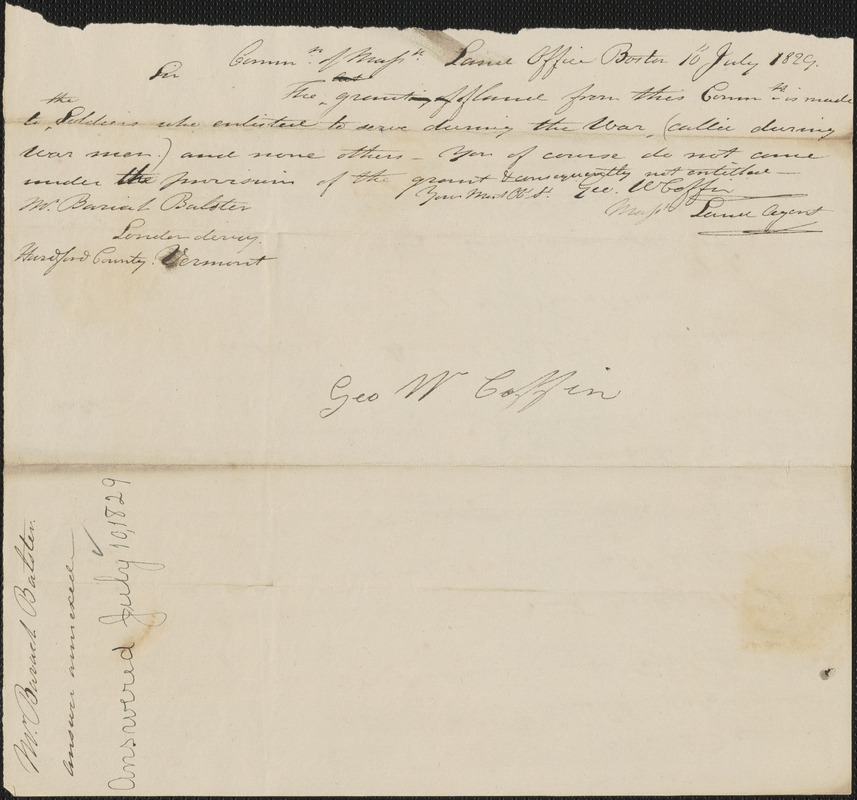 Comm.n of Mass.ts Land Office Boston 10 July 1829.
Sir
The grant of land from this Comm.th is made
to the Soldiers who enlisted to serve during the War, (called during
war men.) and none others - You of course do not come
under the provision of the grant & consequently not entitled -
Your Most Ob St. Geo. W Coffin
Mass.ts Land Agent
Mr. Bariah Balster
Londonderry.
Hardford County. Vermont
Geo W Coffin
Mr. Barach Balster.
answer annexed
Answered July 10, 1829